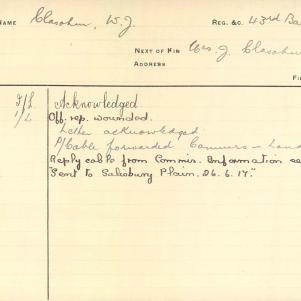 NAME Clasohm, W. J. REG. &C. 43rd Ba
NEXT OF KIN Mrs. J. Clasohm
ADDRESS
F/L Acknowledged.
1/L Off. rep. wounded.
Letter acknowledged
P/Cable forwarded Commrs - Lond
Reply cable from Commis. Information
"Sent to Salisbury Plain. 26.6.17."